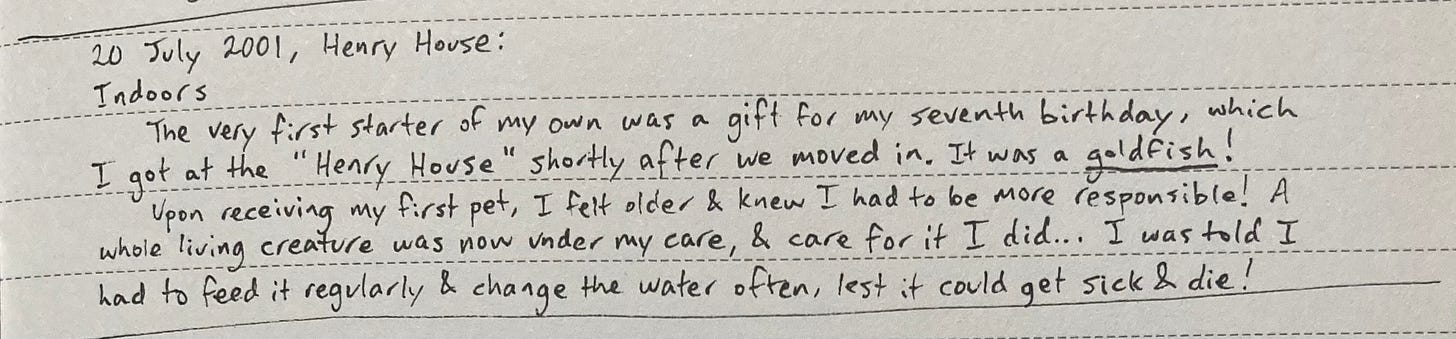 20 July 2001, Henry House:
Indoors
The very first starter of my own was a gift for my seventh birthday, which
I got at the "Henry House" shortly after we moved in. It was a goldfish!
Upon receiving my first pet, I felt older & knew I had to be more responsible! A
whole living creature was now under my care, & care for it I did... I was told I
had to feed it regularly & change the water often, lest it could get sick & die!